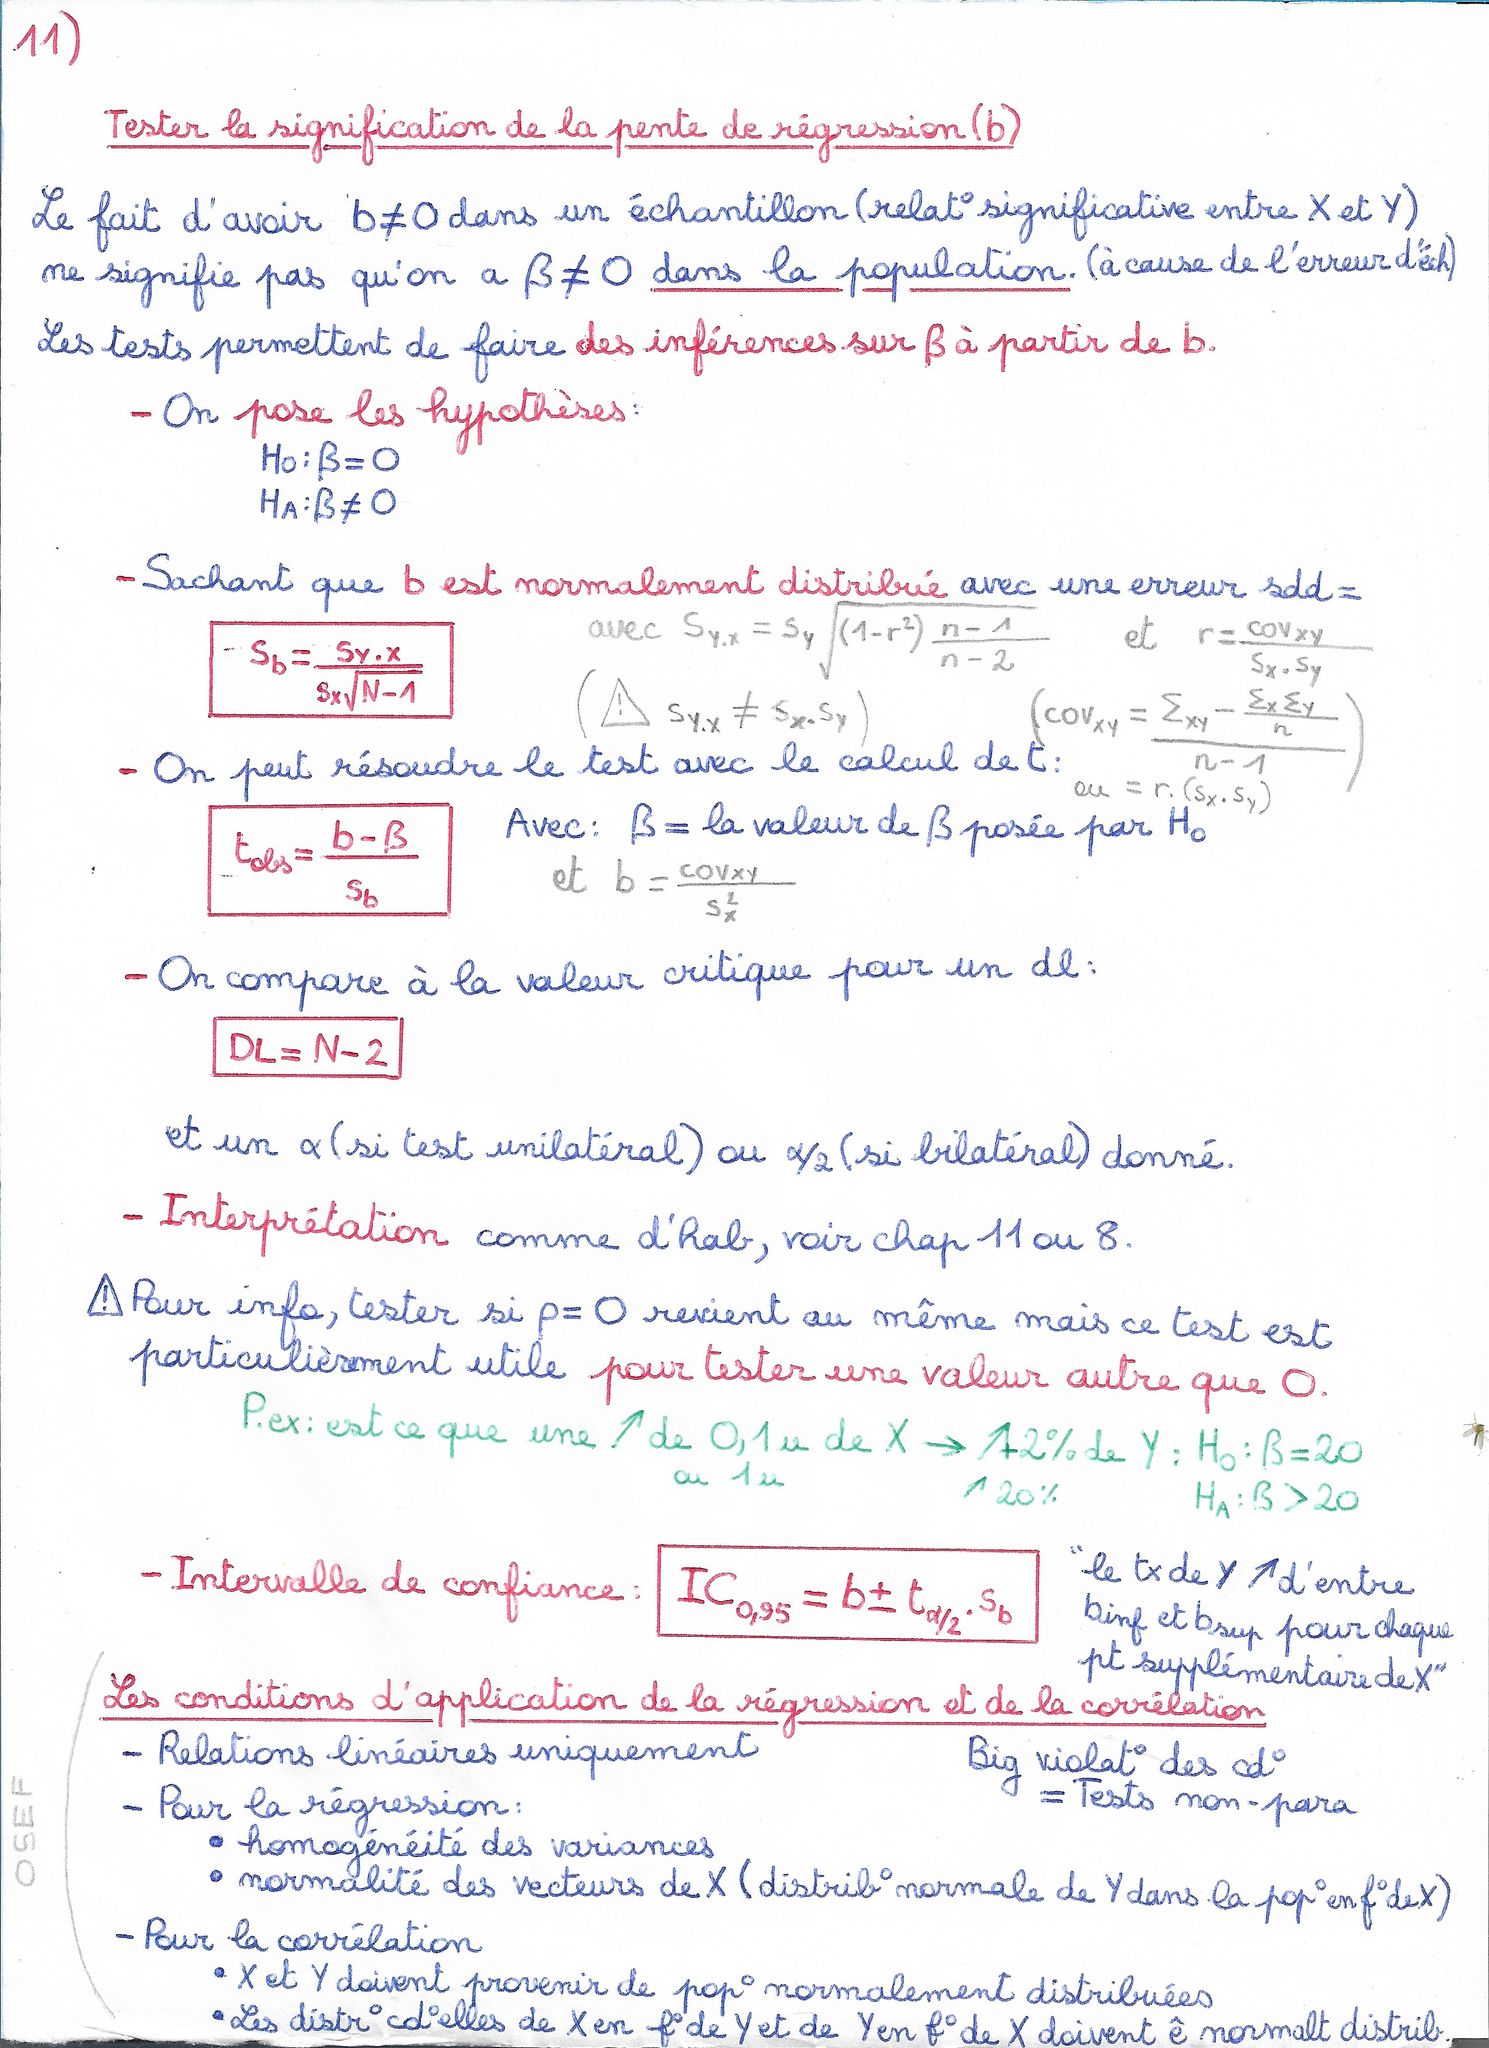 11)
Tester la signification de la pente de régression (b)
Le fait d'avoir b≠0 dans un échantillon (relat° significative entre X et Y)
ne signifie pas qu'on a β≠0 dans la population. (à cause de l'erreur d'éch)
Les tests permettent de faire des inférences sur β à partir de b.
- On pose les hypothèses:
H0: β=0
HA: β≠0
- Sachant que b est normalement distribué avec une erreur sdd =
sb = sy.x / (sx√(N-1)) avec Sy.x = sy √((1-r²) (n-1)/(n-2)) et r = covxy / (sx.sy)
(⚠ sy.x ≠ sx.sy) (covxy = (Σxy - ΣxΣy/n) / (n-1)
- On peut résoudre le test avec le calcul de t: ou = r.(sx.sy))
tobs = (b-β) / sb Avec: β = la valeur de β posée par H0
et b = covxy / sx²
- On compare à la valeur critique pour un dl:
DL = N-2
et un α (si test unilatéral) ou α/2 (si bilatéral) donné.
- Interprétation comme d'hab, voir chap 11 ou 8.
⚠ Pour info, tester si ρ=0 revient au même mais ce test est
particulièrement utile pour tester une valeur autre que 0.
P.ex: est ce que une ↗ de 0,1u de X → ↗ 2% de Y: H0: β=20
ou 1u ↗ 20% HA: β>20
- Intervalle de confiance: IC0,95 = b ± tα/2 . sb
"le tx de Y ↗ d'entre
binf et bsup pour chaque
pt supplémentaire de X"
Les conditions d'application de la régression et de la corrélation
- Relations linéaires uniquement
Big violat° des cd°
= Tests non-para
- Pour la régression:
• homogénéité des variances
• normalité des vecteurs de X (distrib° normale de Y dans la pop° en f° de X)
- Pour la corrélation
• X et Y doivent provenir de pop° normalement distribuées
• Les distr° cd°elles de X en f° de Y et de Y en f° de X doivent ê normalt distrib.
OSEF